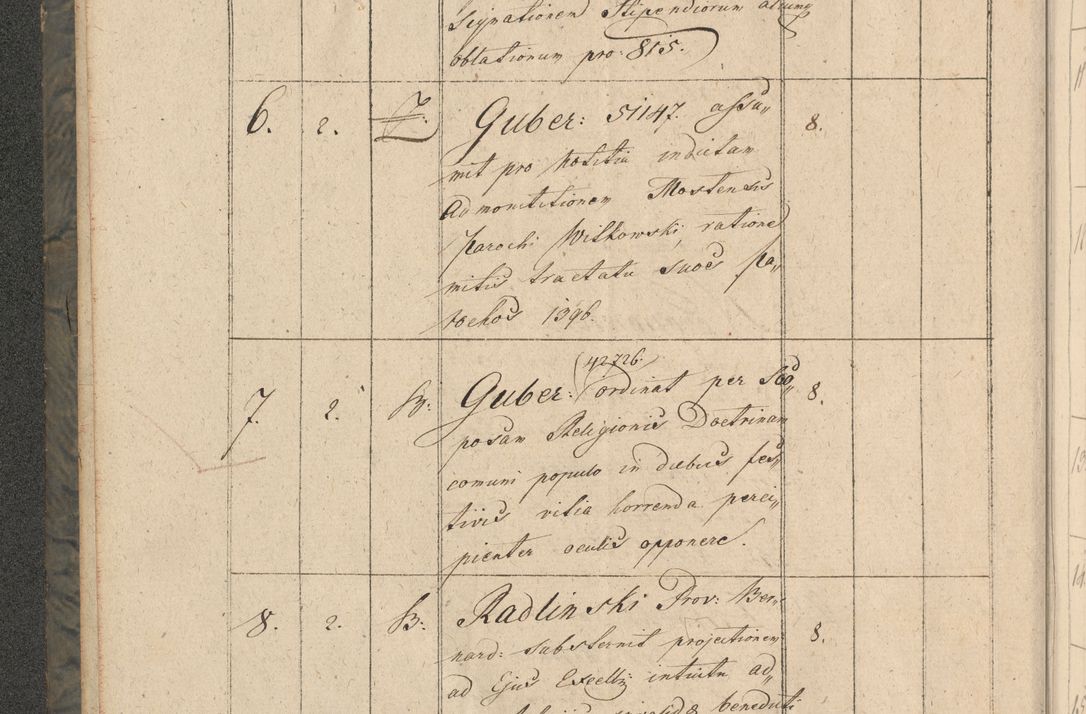 Scignationem Stipendiorum
oblationum pro: 815.
6. 2. Z. Guber: 51147. assu„ 8.
mit pro notitia indutam
admonitionem Mostensis
Parochi Witkowski, ratione
mitis tractatu suos pa„
rochos 1396.
(42726.)
7. 2. W: Guber: ordinat per 8.
posam Religionis Doctrinam
comuni populo in diebus fes„
tivis vitia horrenda perci„
pienter oculis opponere.
8. 2. B: Radlinski Prov: Ber„ 8.
nard: substernit projectionem
ad Ejus Excellz intuitu ad„